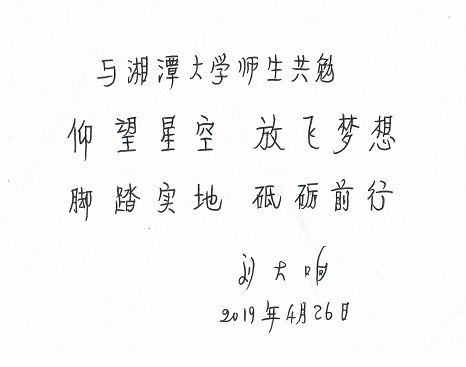 与湘潭大学师生共勉
仰望星空 放飞梦想
脚踏实地 砥砺前行
刘大响
2019年4月26日